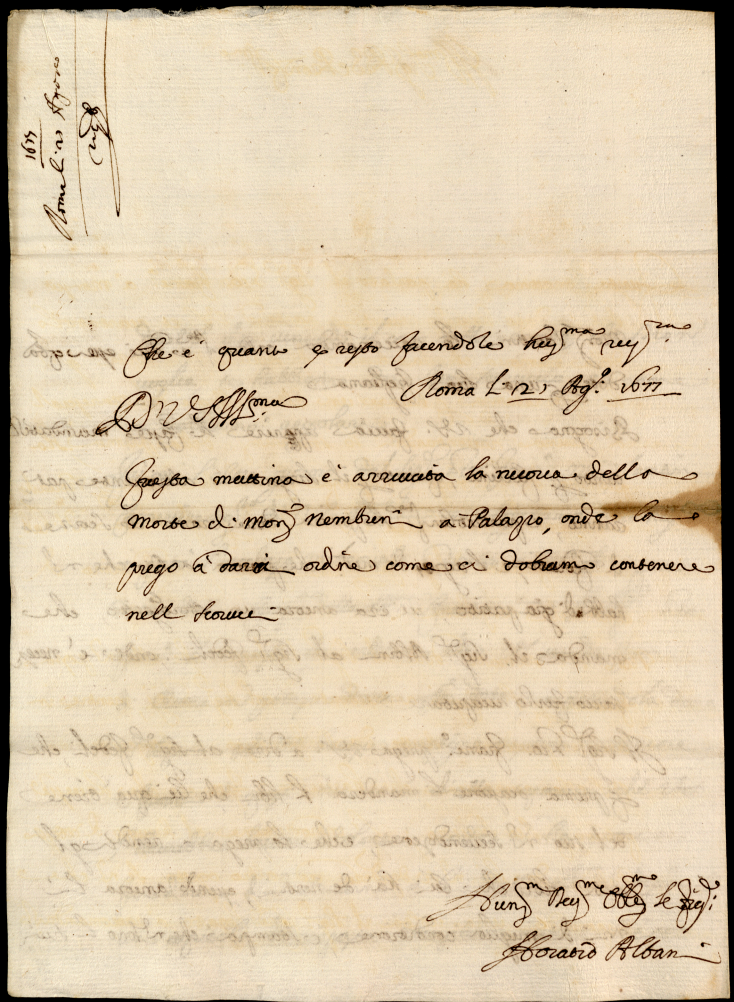 1677
Roma li 21 Agosto
Che è quanto p resto facendole hum.ma reu.za
Roma li 21 Ag.o 1677
D V S Ill.ma
Questa mattina è arrivata la nuova della
morte di Mons.r Nembrini a Palazzo, onde la
prego à darci ordine come ci dobiam contenere
nell scrivere
Hum.mo Deu.mo Obl.mo Se
Horatio Albani